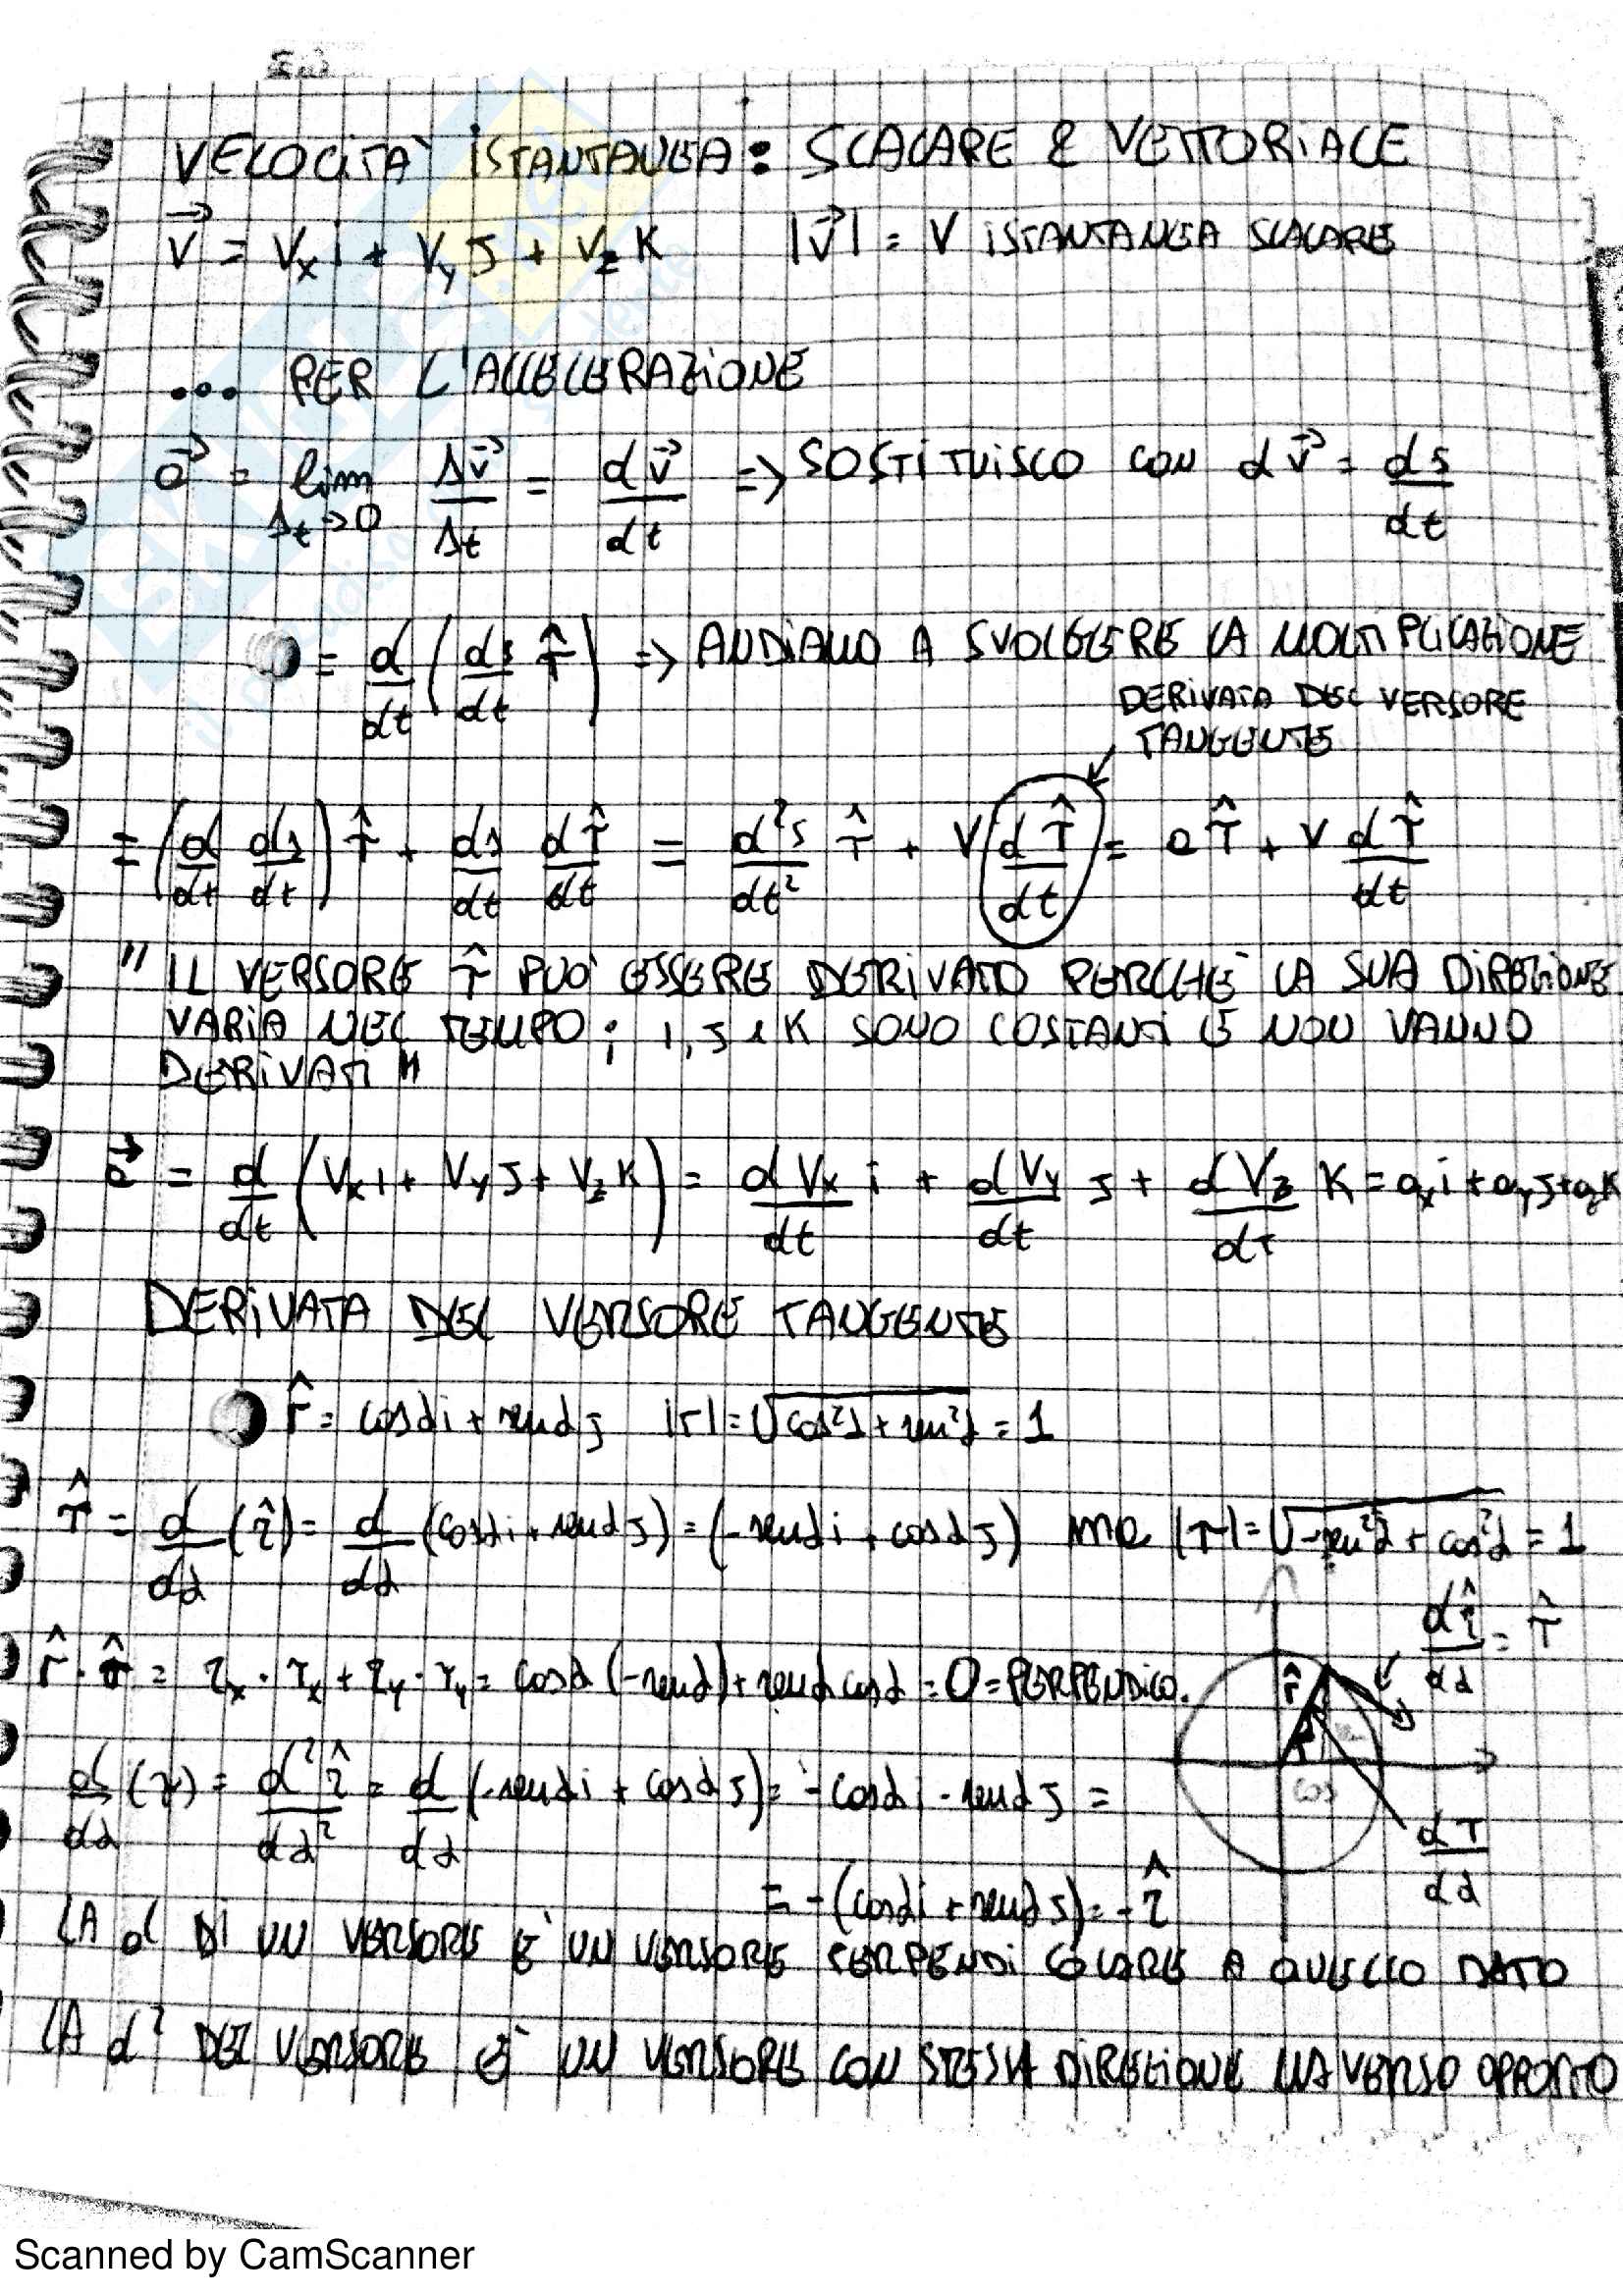 VELOCITA' ISTANTANEA: SCALARE E VETTORIALE
v⃗ = Vx i + Vy J + Vz K |v⃗| = V ISTANTANEA SCALARE
... PER L'ACCELERAZIONE
a⃗ = lim Δt→0 Δv⃗/Δt = dv⃗/dt => SOSTITUISCO CON dv⃗ = ds/dt
= d/dt (ds/dt T̂) => ANDIAMO A SVOLGERE LA MOLTIPLICAZIONE
DERIVATA DEL VERSORE
TANGENTE
= (d/dt ds/dt) T̂ + ds/dt dT̂/dt = d²s/dt² T̂ + V dT̂/dt = a T̂ + V dT̂/dt
"IL VERSORE T̂ PUO' ESSERE DERIVATO PERCHE' LA SUA DIREZIONE
VARIA NEL TEMPO; i, J e K SONO COSTANTI E NON VANNO
DERIVATI"
a⃗ = d/dt (Vx i + Vy J + Vz K) = dVx/dt i + dVy/dt J + dVz/dt K = ax i + ay J + az K
DERIVATA DEL VERSORE TANGENTE
r̂ = cosα i + senα J |r| = √cos²α + sen²α = 1
T̂ = d/dα (r̂) = d/dα (cosα i + senα J) = (-senα i + cosα J) ma |T| = √-sen²α + cos²α = 1
dr̂/dα = T̂
r̂ · T̂ = rx · Tx + ry · Ty = cosα (-senα) + senα cosα = 0 = PERPENDICO.
r̂
d/dα (T) = d²r̂/dα² = d/dα (-senα i + cosα J) = -cosα i - senα J =
cos
dT/dα
= -(cosα i + senα J) = -r̂
LA d DI UN VERSORE E' UN VERSORE PERPENDICOLARE A QUELLO DATO
LA d² DEL VERSORE E' UN VERSORE CON STESSA DIREZIONE MA VERSO OPPOSTO
Scanned by CamScanner